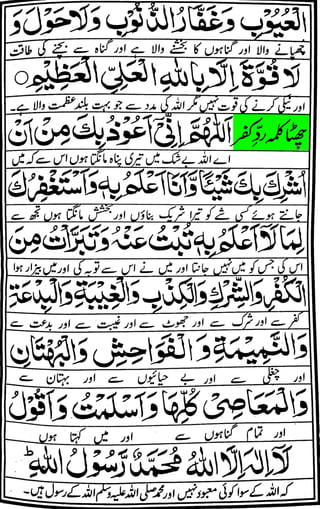 الْعُيُوْبِ وَغَفَّارُ الذُّنُوْبِ وَلَا حَوْلَ وَ
چھپانے والا اور گناہوں کا بخشنے والا ہے اور گناہ سے بچنے کی طاقت
لَا قُوَّةَ اِلَّا بِاللّٰهِ الْعَلِىِّ الْعَظِيْمِ ○
اور نیکی کرنے کی قوت نہیں مگر اللہ کی مدد سے جو بہت بلند عظمت والا ہے۔
چھٹا کلمہ ردِّ کفر اَللّٰهُمَّ اِنِّىْٓ اَعُوْذُ بِكَ مِنْ اَنْ
اے اللہ بے شک میں تیری پناہ مانگتا ہوں اس سے کہ میں
اُشْرِكَ بِكَ شَيْئًا وَّاَنَا اَعْلَمُ بِهٖ وَاَسْتَغْفِرُكَ
جانتے ہوئے کسی شے کو تیرا شریک بناؤں اور بخشش مانگتا ہوں تجھ سے
لِمَا لَا اَعْلَمُ بِهٖ تُبْتُ عَنْهُ وَتَبَرَّاْتُ مِنَ
اس کی جس کو میں نہیں جانتا اور میں نے اس سے توبہ کی اور میں بیزار ہوا
الْكُفْرِ وَالشِّرْكِ وَالْكِذْبِ وَالْغِيْبَةِ وَالْبِدْعَةِ
کفر سے اور شرک سے اور جھوٹ سے اور غیبت سے اور بدعت سے
وَالنَّمِيْمَةِ وَالْفَوَاحِشِ وَالْبُهْتَانِ
اور چغلی سے اور بے حیائیوں سے اور بہتان سے
وَالْمَعَاصِىْ كُلِّهَا وَاَسْلَمْتُ وَاَقُوْلُ
اور تمام گناہوں سے اور میں کہتا ہوں
لَآ اِلٰهَ اِلَّا اللّٰهُ مُحَمَّدٌ رَّسُوْلُ اللّٰهِ ط
کہ اللہ کے سوا کوئی معبود نہیں اور محمد صلی اللہ علیہ وسلم اللہ کے رسول ہیں۔